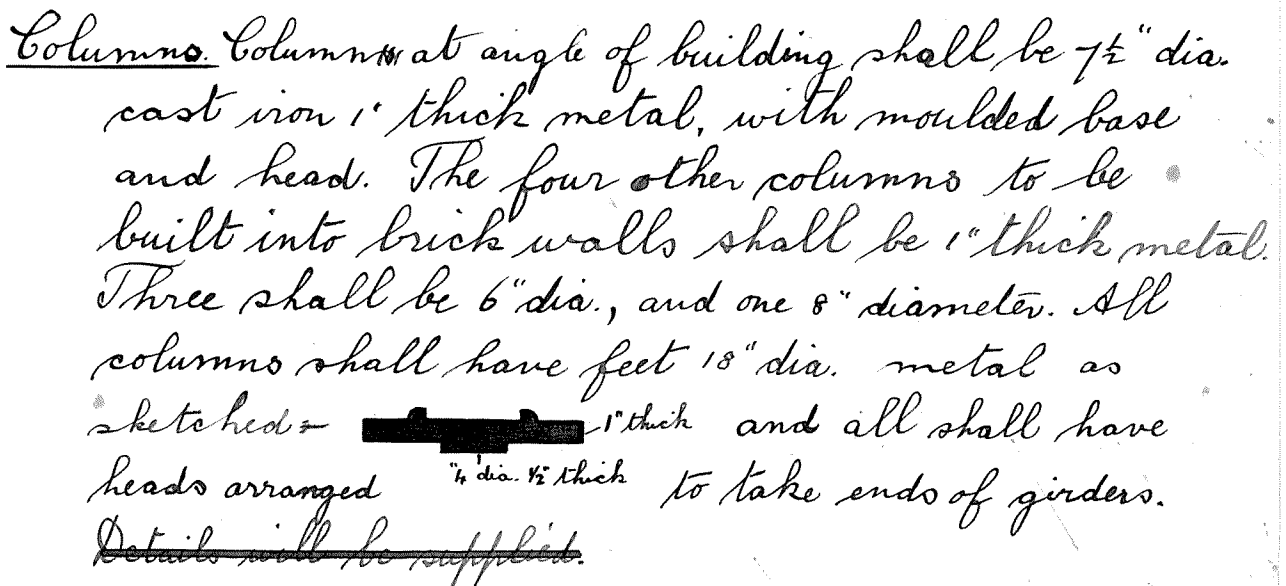 Columns. Column at angle of building shall be 7½" dia.
cast iron 1" thick metal, with moulded base
and head. The four other columns to be
built into brick walls shall be 1" thick metal.
Three shall be 6" dia., and one 8" diameter. All
columns shall have feet 18" dia. metal as
sketched = 1" thick and all shall have
heads arranged "4 dia. ½" thick to take ends of girders.
Details will be supplied.